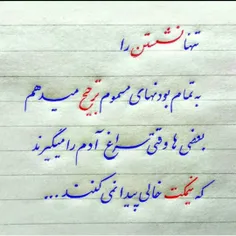 تنها نشستن را
به تمام بودنهای مسموم ترجیح میدهم
بعضی ها وقتی سراغ آدم را میگیرند
که نیمکت خالی پیدا نمی کنند...